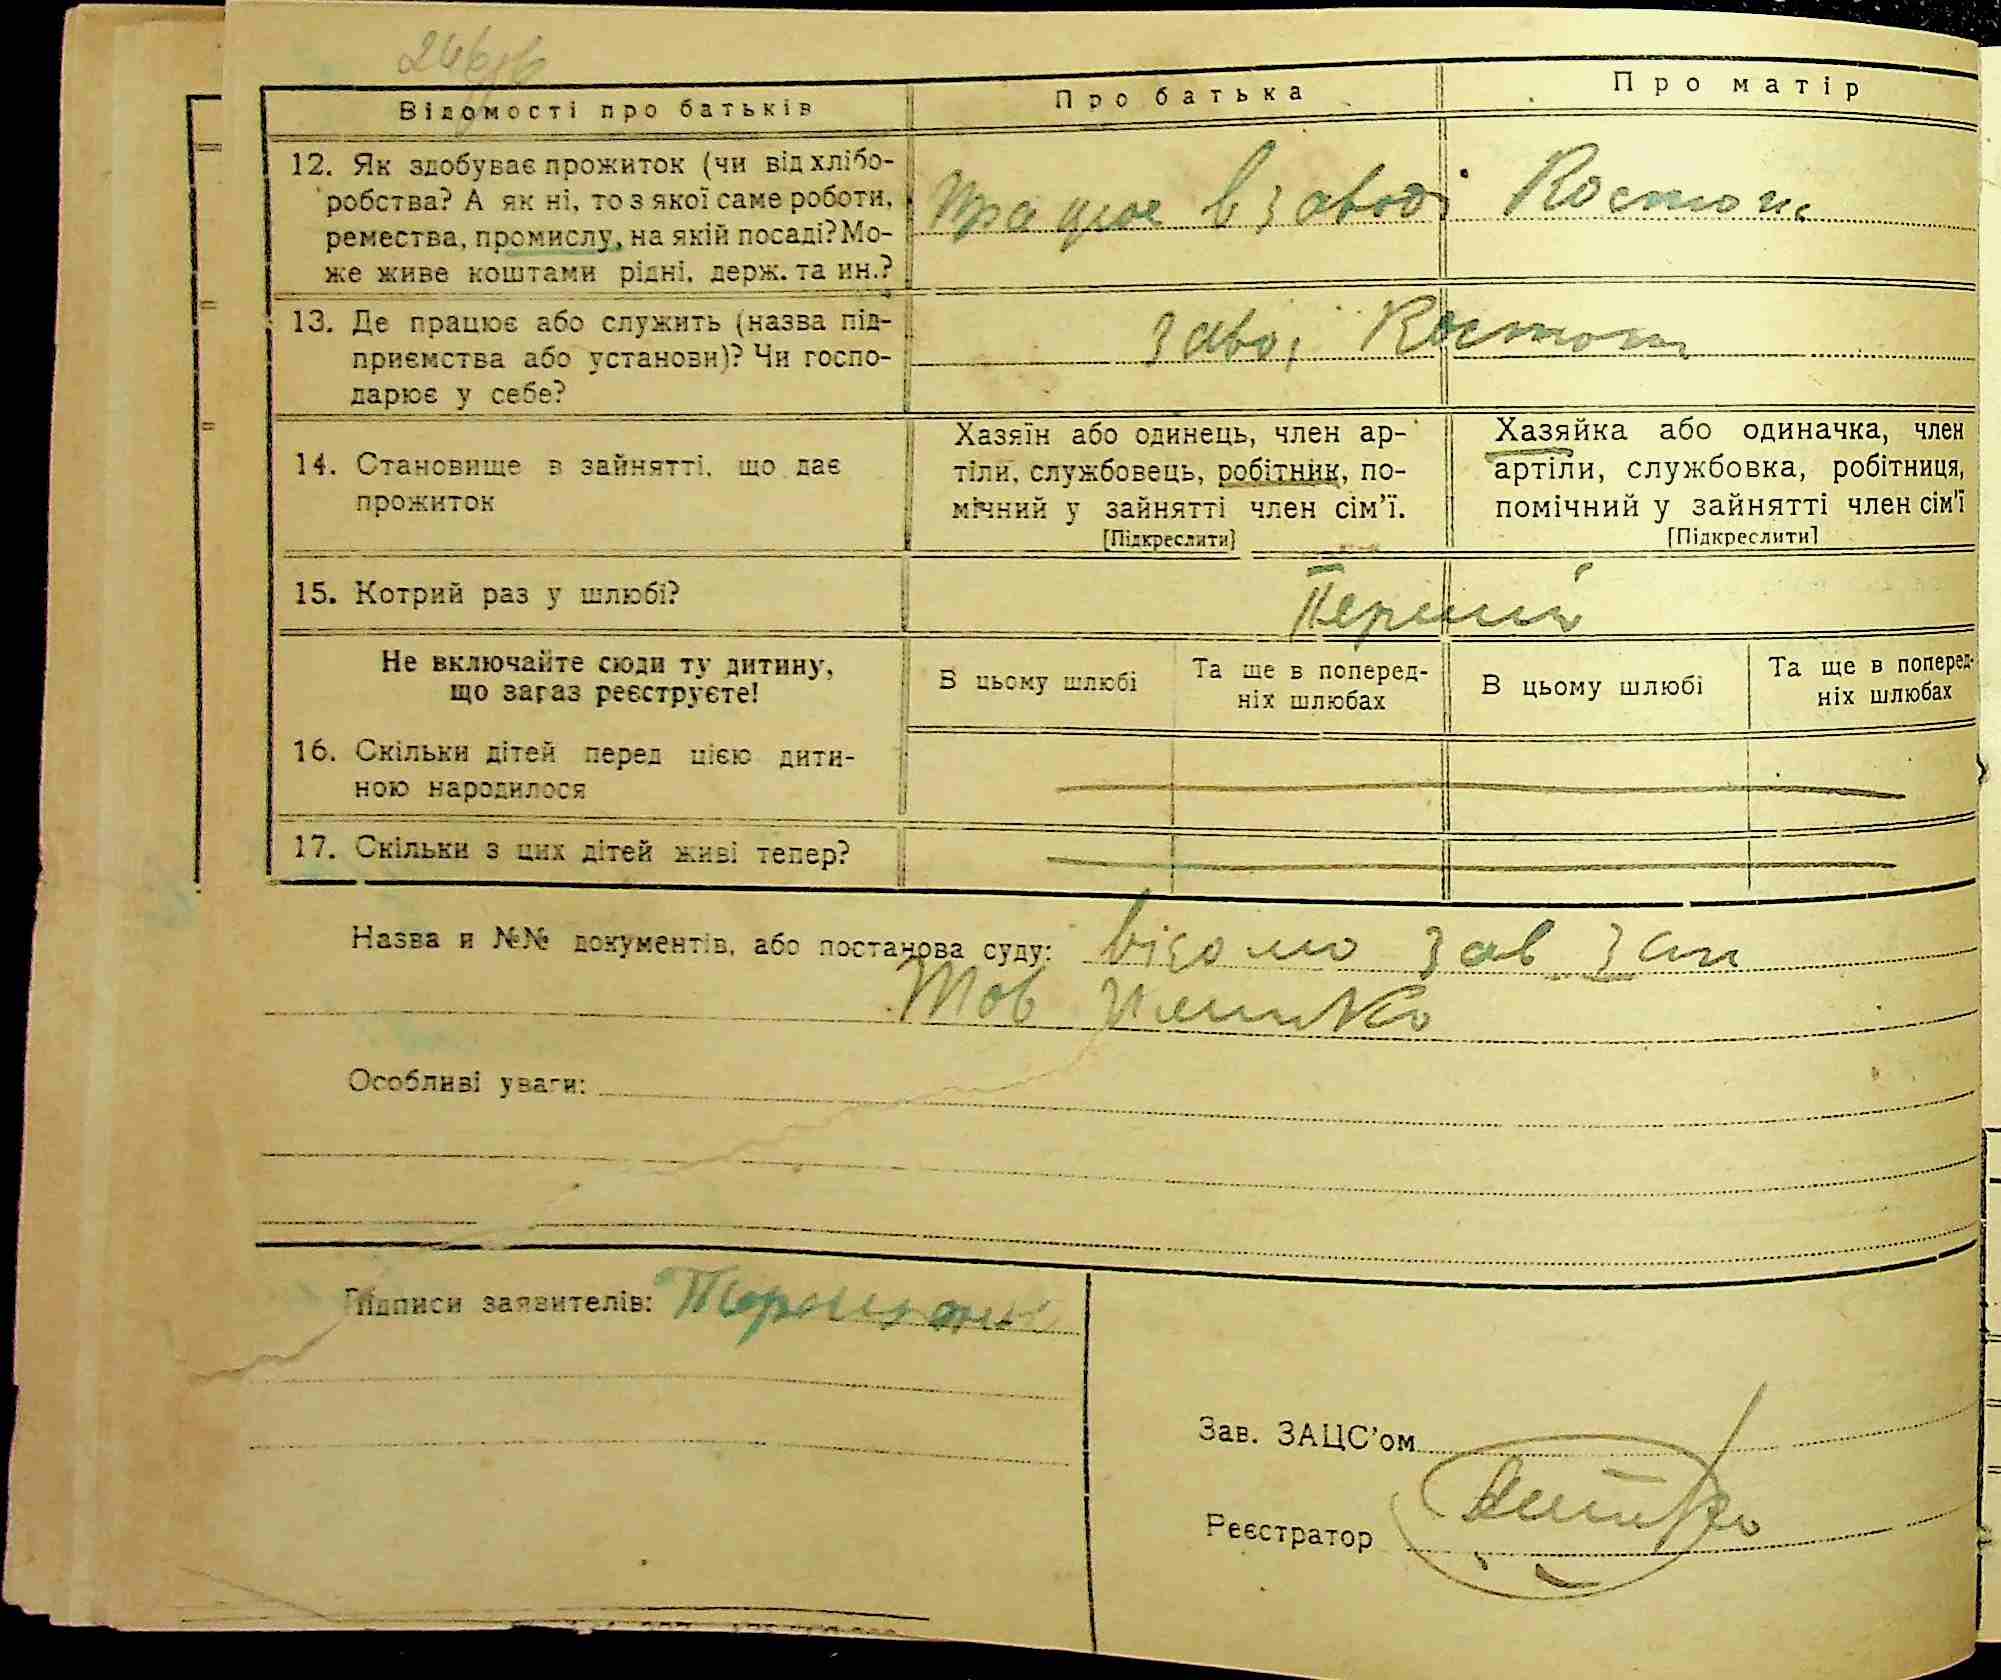 Відомості про батьків
Про батька
Про матір
12. Як здобуває прожиток (чи від хлібо-
робства? А як ні, то з якої саме роботи,
ремества, промислу, на якій посаді? Мо-
же живе коштами рідні, держ. та ин.?
Працює в заводі
13. Де працює або служить (назва під-
приємства або установи)? Чи госпо-
дарює у себе?
14. Становище в зайнятті, що дає
прожиток
Хазяїн або одинець, член ар-
тіли, службовець, робітник, по-
мічний у зайнятті член сім'ї.
[Підкреслити]
Хазяйка або одиначка, член
артіли, службовка, робітниця,
помічний у зайнятті член сім'ї
[Підкреслити]
15. Котрий раз у шлюбі?
Перший
Не включайте сюди ту дитину,
що загаз реєструєте!
В цьому шлюбі
Та ще в поперед-
ніх шлюбах
В цьому шлюбі
Та ще в поперед-
ніх шлюбах
16. Скільки дітей перед цією дити-
ною народилося
17. Скільки з цих дітей живі тепер?
Назва й №№ документів, або постанова суду: відомо зав
Тов
Особливі уваги:
Підписи заявителів:
Зав. ЗАЦС'ом
Реєстратор